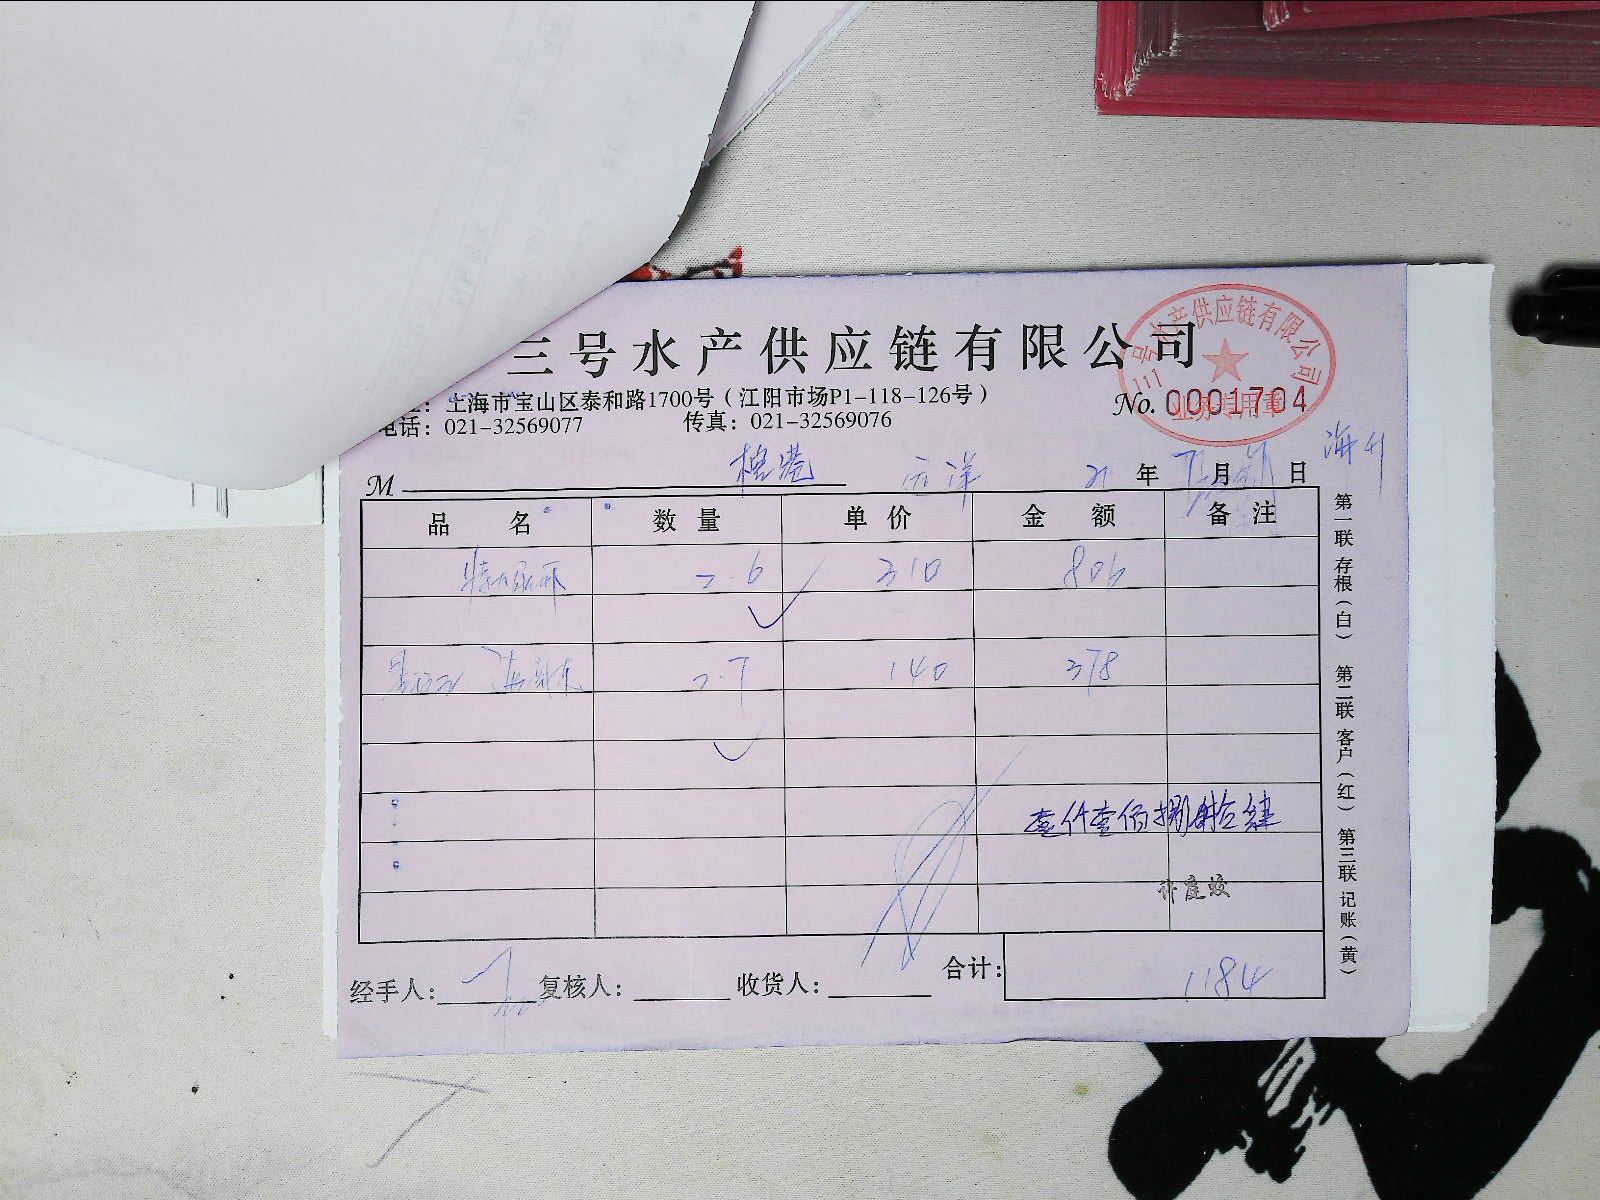 三号水产供应链有限公司
三号水产供应链有限公司
业务专用章
址：上海市宝山区泰和路1700号（江阳市场P1-118-126号）
No. 0001704
电话：021-32569077 传真：021-32569076
M 远洋 21 年 月 日
品名 数量 单价 金额 备注
2.6 310 806
2.7 140 378
壹仟壹佰捌拾肆
许庭蛟
合计： 1184
经手人： 复核人： 收货人：
第一联 存根（白） 第二联 客户（红） 第三联 记账（黄）